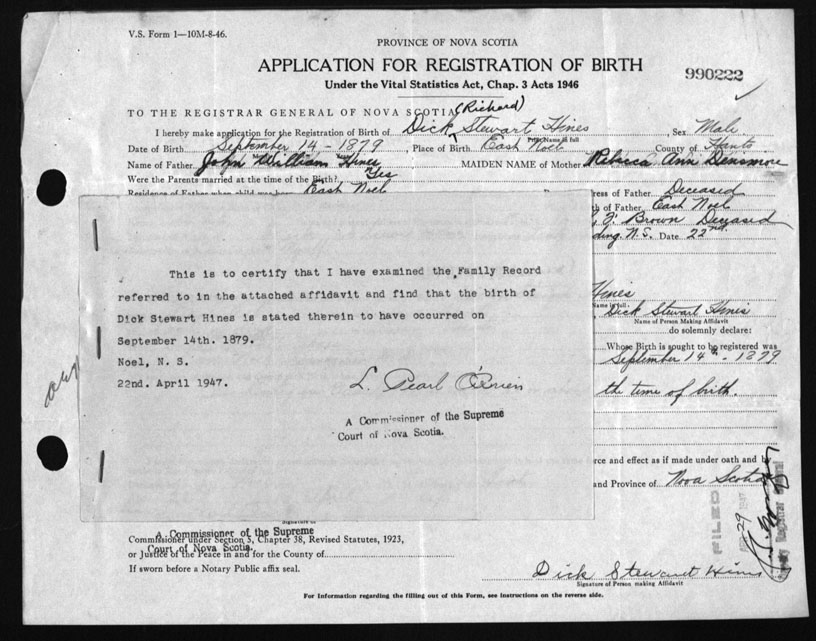 V.S. Form 1—10M-8-46.
PROVINCE OF NOVA SCOTIA
APPLICATION FOR REGISTRATION OF BIRTH
990222
Under the Vital Statistics Act, Chap. 3 Acts 1946
TO THE REGISTRAR GENERAL OF NOVA SCOTIA
(Richard)
I hereby make application for the Registration of Birth of Dick Stewart Hines, Sex Male
Print Name in full
Date of Birth September 14 - 1879, Place of Birth East Noel County of Hants
Name of Father John William Hines MAIDEN NAME of Mother Rebecca Ann Densmore
Were the Parents married at the time of the Birth? Yes
ress of Father Deceased
Residence of Father when child was born East Noel
th of Father East Noel
Brown Deceased
ding, N.S. Date 22nd
This is to certify that I have examined the Family Record
referred to in the attached affidavit and find that the birth of
Dick Stewart Hines is stated therein to have occurred on
September 14th. 1879.
Noel, N. S.
22nd. April 1947.
L. Pearl O'Brien
A Commissioner of the Supreme
Court of Nova Scotia.
Hines
Name in full
Dick Stewart Hines
Name of Person Making Affidavit
do solemnly declare:
Whose Birth is sought to be registered was
September 14th - 1879
the time of birth.
rce and effect as if made under oath and by
and Province of Nova Scotia
FILED
29
Registrar General
Signature of
A Commissioner of the Supreme
Commissioner under Section 5, Chapter 38, Revised Statutes, 1923,
Court of Nova Scotia.
or Justice of the Peace in and for the County of
If sworn before a Notary Public affix seal.
Dick Stewart Hines
Signature of Person making Affidavit
For Information regarding the filling out of this Form, see instructions on the reverse side.